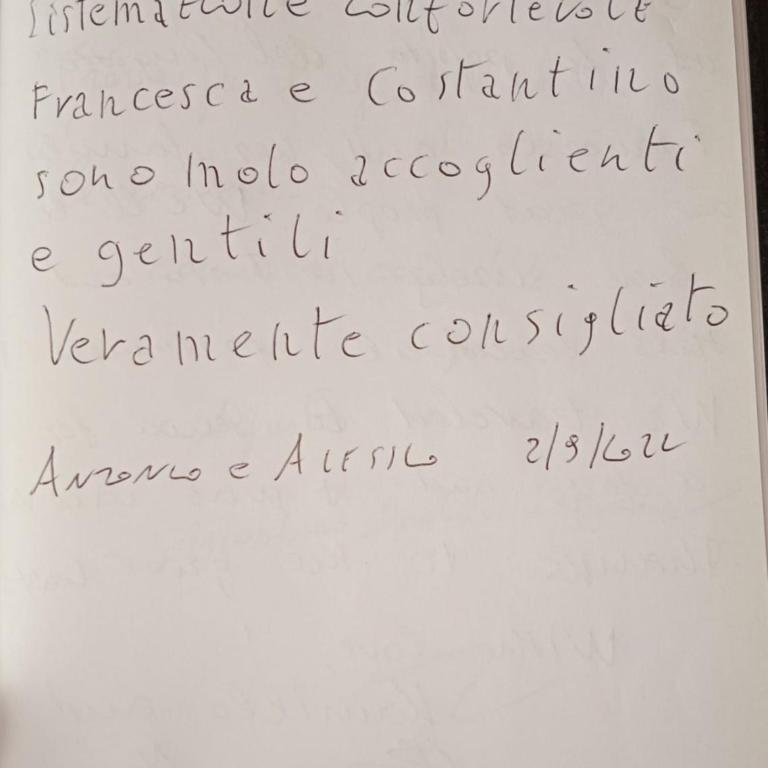 sistemazione confortevole
Francesca e Costantino
sono molo accoglienti
e gentili
Veramente consigliato
ANTONIO e ALESSIO 2/9/2022